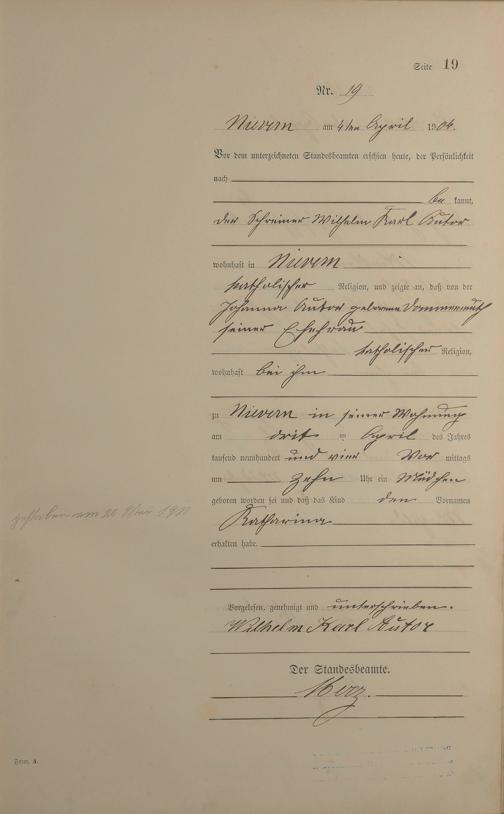 Seite 19
Nr. 19
Nievern am 4ten April 1904.
Vor dem unterzeichneten Standesbeamten erschien heute, der Persönlichkeit
nach
be kannt,
der Schreiner Wilhelm Karl Autor
wohnhaft in Nievern
katholischer Religion, und zeigte an, daß von der
Johanna Autor geborenen Dommermuth
seiner Ehefrau
katholischer Religion,
wohnhaft bei ihm
zu Nievern in seiner Wohnung
am dritten April des Jahres
tausend neunhundert und vier Vor mittags
um zehn Uhr ein Mädchen
geboren worden sei und daß das Kind den Vornamen
Katharina
erhalten habe.
Vorgelesen, genehmigt und unterschrieben.
Wilhelm Karl Autor
Der Standesbeamte.
Merz.
gestorben am 20
Form. A.